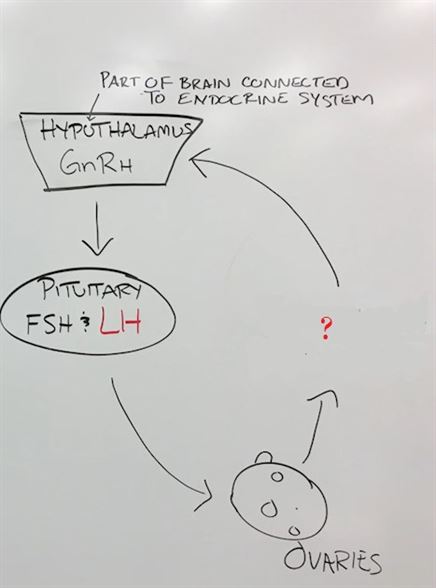 PART OF BRAIN CONNECTED
TO ENDOCRINE SYSTEM
HYPOTHALAMUS
GnRH
PITUITARY
FSH & LH
?
OVARIES